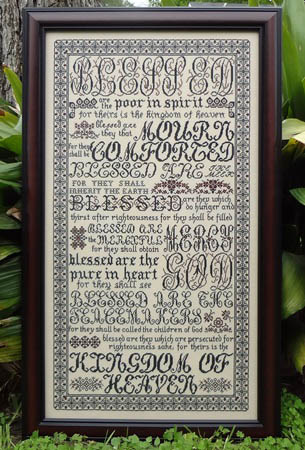 BLESSED
are the poor in spirit
for theirs is the kingdom of heaven
blessed are they that MOURN
for they shall be COMFORTED
BLESSED ARE THE MEEK
FOR THEY SHALL
INHERIT THE EARTH
BLESSED are they which do hunger and
thirst after righteousness for they shall be filled
BLESSED are the MERCIFUL
for they shall obtain MERCY
blessed are the
pure in heart
for they shall see GOD
BLESSED ARE THE
PEACEMAKERS
for they shall be called the children of God
blessed are they which are persecuted for
righteousness sake, for theirs is the
KINGDOM OF
HEAVEN